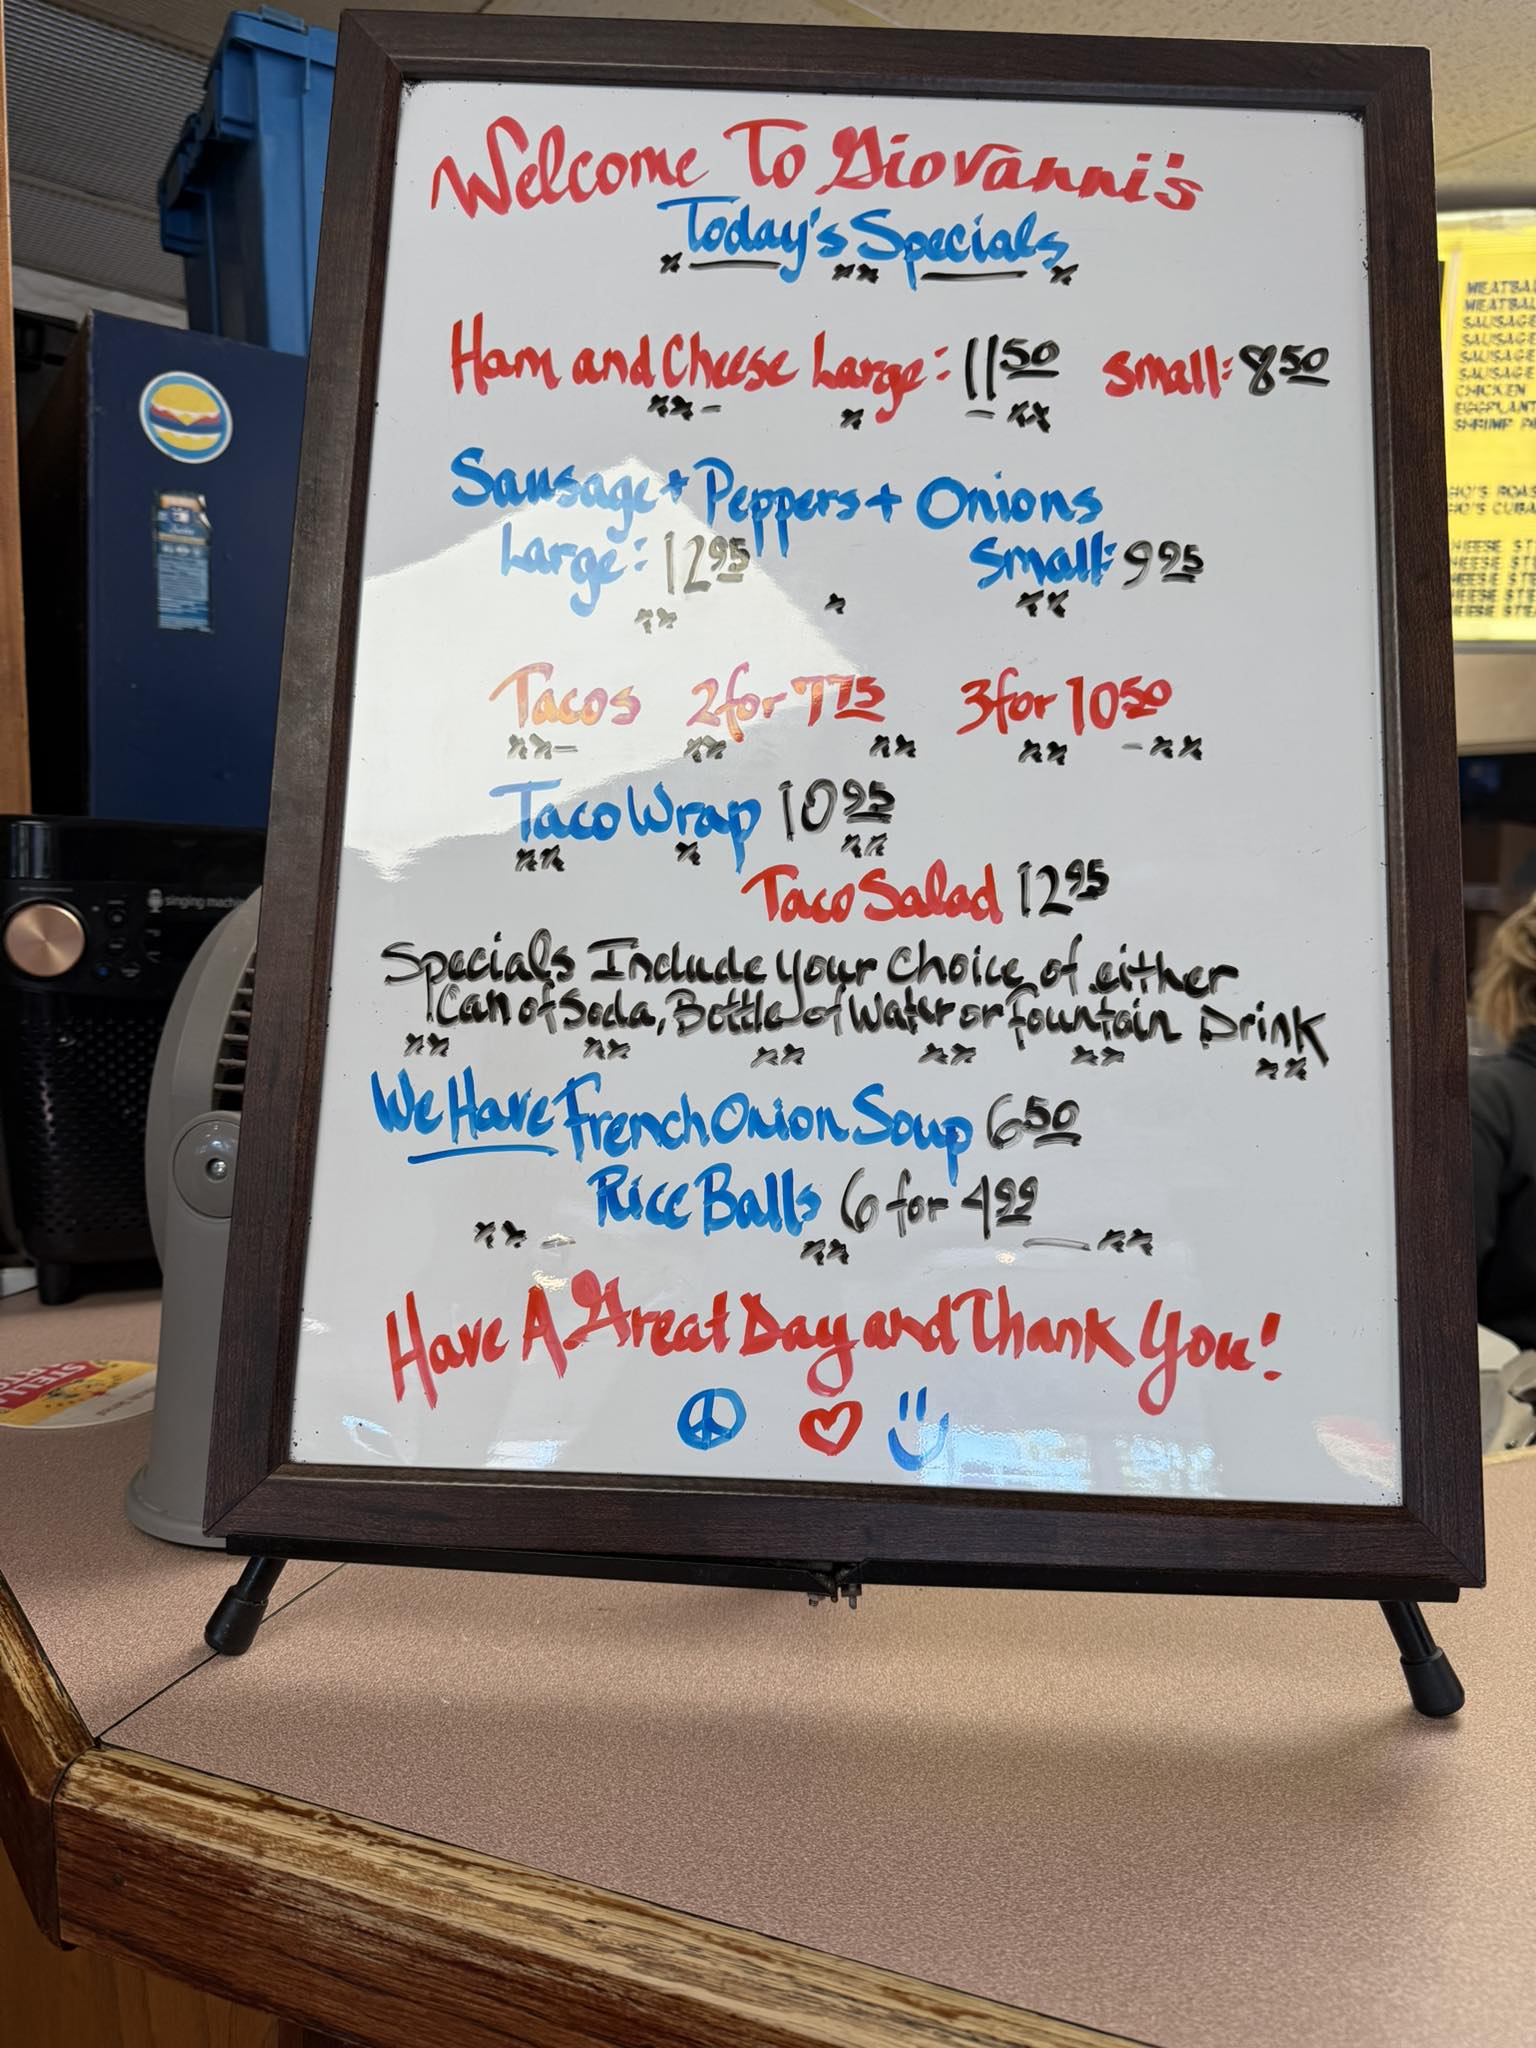 Welcome To Giovanni's
Today's Specials
Ham and Cheese Large: 1150 Small: 850
Sausage + Peppers + Onions
Large: 1295 Small: 995
Tacos 2 for 775 3 for 1050
Taco Wrap 1095
Taco Salad 1295
Specials Include your choice of either
Can of Soda, Bottle of Water or fountain Drink
We Have French Onion Soup 650
Rice Balls 6 for 499
Have A Great Day and Thank You!
singing machin
MEATBA
MEATBAL
SAUSAGE
SAUSAGE
SAUSAGE
CHICKEN
EGGPLANT
SHRIMP